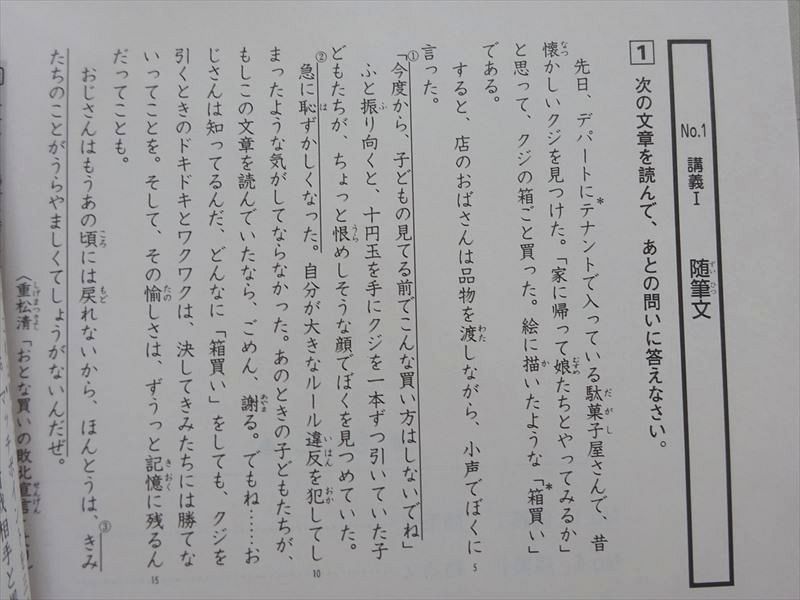 No.1 講義Ⅰ 随筆文
1 次の文章を読んで、あとの問いに答えなさい。
先日、デパートに*テナントで入っている駄菓子屋さんで、昔
懐かしいクジを見つけた。「家に帰って娘たちとやってみるか」
と思って、クジの箱ごと買った。絵に描いたような*「箱買い」
である。
すると、店のおばさんは品物を渡しながら、小声でぼくに
言った。
①「今度から、子どもの見てる前でこんな買い方はしないでね」
ふと振り向くと、十円玉を手にクジを一本ずつ引いていた子
どもたちが、ちょっと恨めしそうな顔でぼくを見つめていた。
②急に恥ずかしくなった。自分が大きなルール違反を犯してし
まったような気がしてならなかった。あのときの子どもたちが、
もしこの文章を読んでいたなら、ごめん、謝る。でもね……お
じさんは知ってるんだ、どんなに「箱買い」をしても、クジを
引くときのドキドキとワクワクは、決してきみたちには勝てな
いってことを。そして、その愉しさは、ずうっと記憶に残るん
だってことも。
おじさんはもうあの頃には戻れないから、ほんとうは、③きみ
たちのことがうらやましくてしょうがないんだぜ。
〈重松清「おとな買いの敗北宣言」
5
10
15